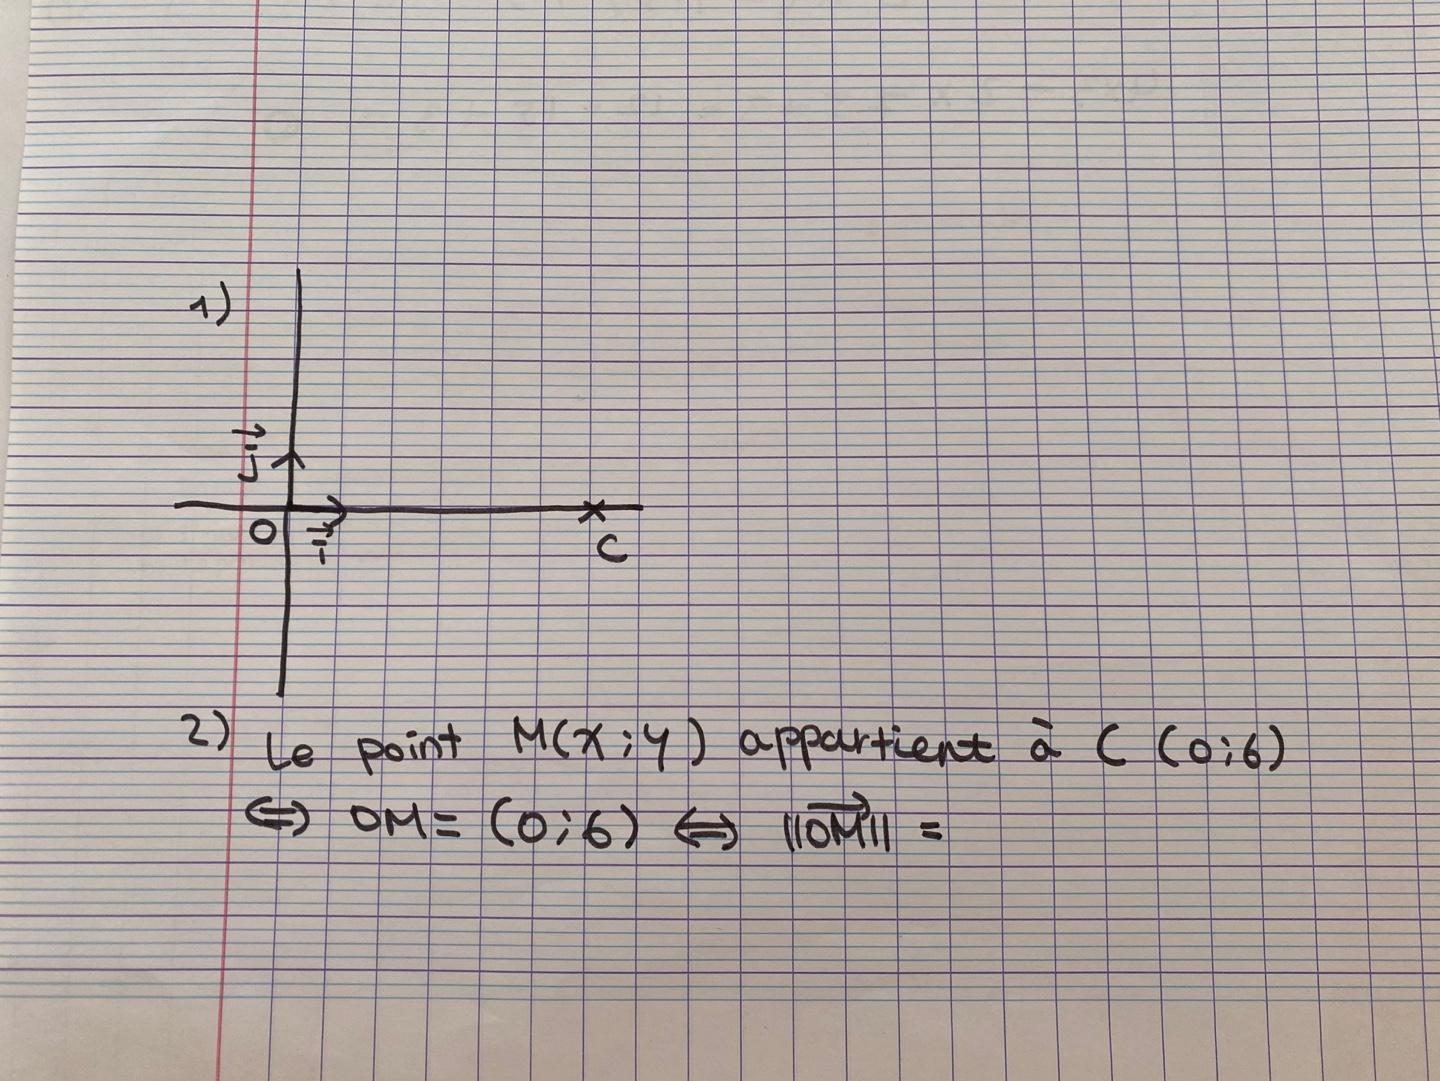 1)
j
O
i
C
2) Le point M(x;y) appartient à C (0;6)
⇔ OM = (0;6) ⇔ ||OM|| =